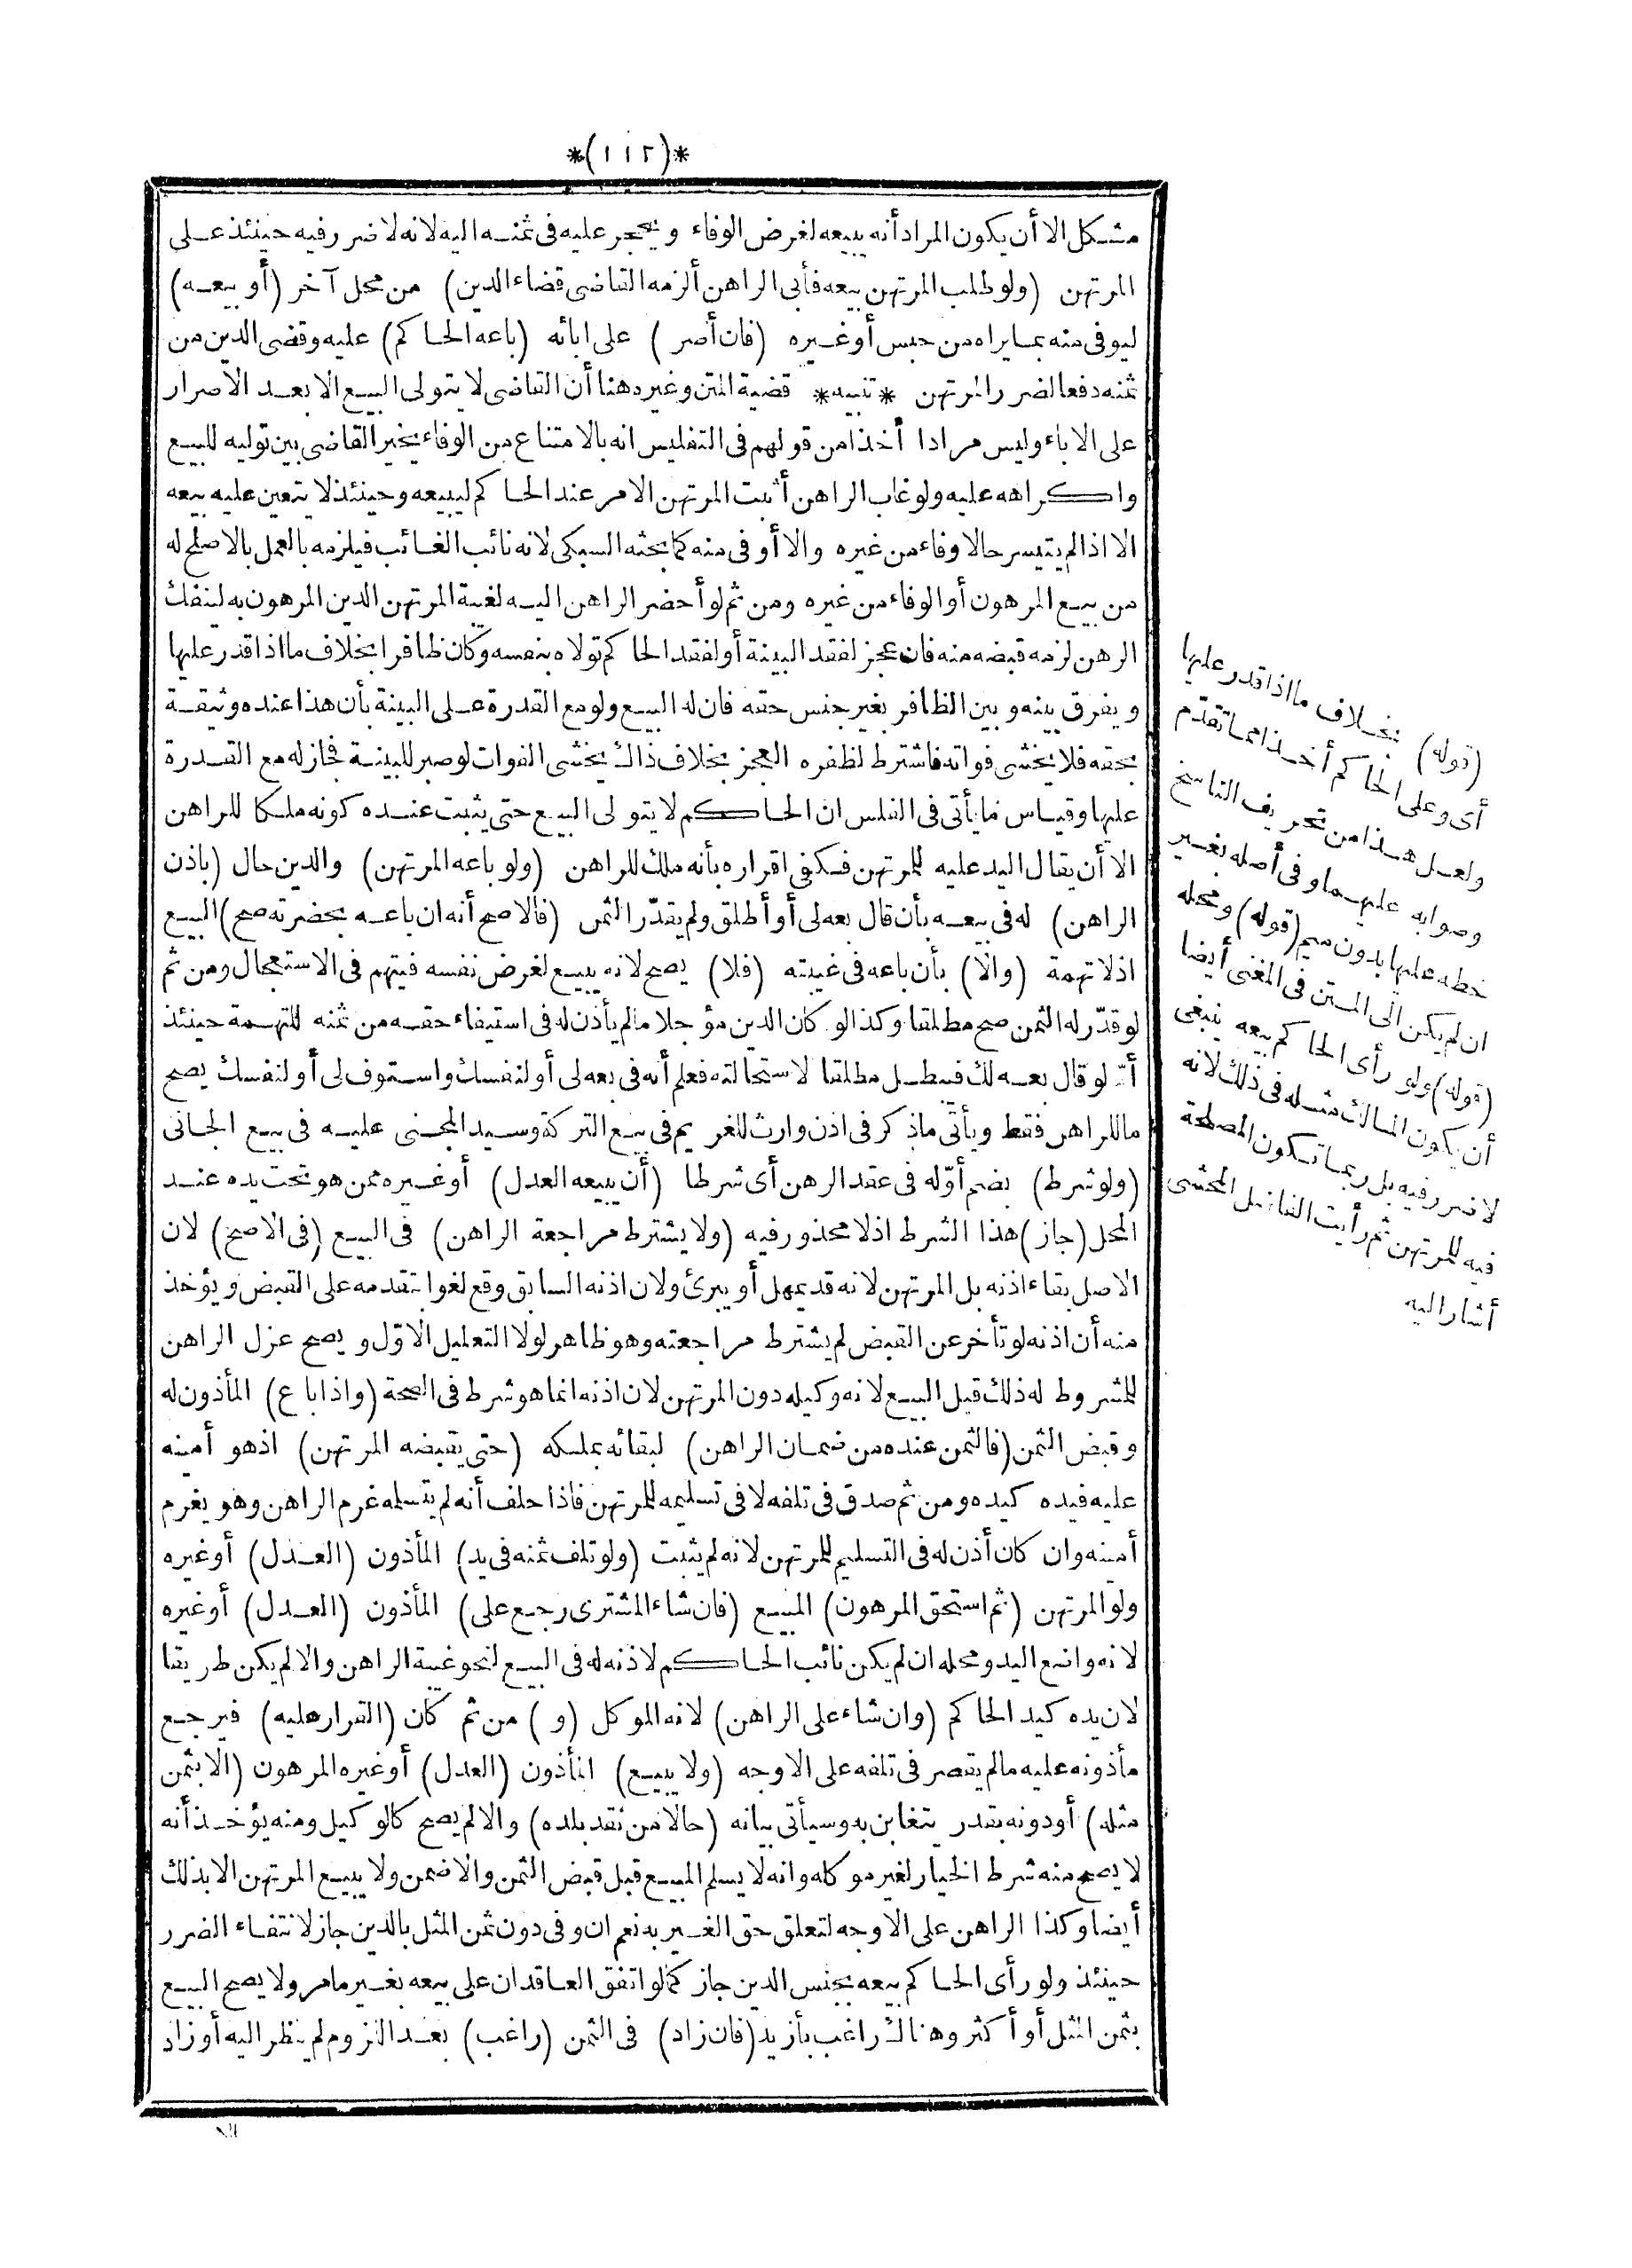 *(١١٢)*
مشكل الا أن يكون المراد أنه يبيعه لغرض الوفاء ويحجر عليه في ثمنه اليه لانه لا ضرر فيه حينئذ على
المرتهن (ولو طلب المرتهن بيعه فأبى الراهن ألزمه القاضى قضاء الدين) من محل آخر (أو بيعه)
ليوفى منه بما يراه من حبس أو غيره (فان أصر) على ابائه (باعه الحاكم) عليه وقضى الدين من
ثمنه دفعا لضرر المرتهن *تنبيه* قضية المتن وغيره هنا أن القاضى لا يتولى البيع الا بعد الاصرار
على الاباء وليس مرادا أخذا من قولهم في التفليس انه بالامتناع من الوفاء يخير القاضى بين توليه للبيع
واكراهه عليه ولو غاب الراهن أثبت المرتهن الامر عند الحاكم ليبيعه وحينئذ لا يتعين عليه بيعه
الا اذا لم يتيسر حالا وفاء من غيره والا أوفى منه كما بحثه السبكى لانه نائب الغائب فيلزمه بالعمل بالاصلح له
من بيع المرهون أو الوفاء من غيره ومن ثم لو أحضر الراهن اليه لغيبة المرتهن الدين المرهون به لينفك
الرهن لزمه قبضه منه فان عجز لفقد البينة أو لفقد الحاكم تولاه بنفسه وكان ظافرا بخلاف ما اذا قدر عليها
ويفرق بينه وبين الظافر بغير جنس حقه فان له البيع ولو مع القدرة على البينة بأن هذا عنده وثيقة
بحقه فلا يخشى فواته فاشترط لظفره العجز بخلاف ذاك يخشى الفوات لو صبر للبينة فجاز له مع القدرة
عليها وقياس ما يأتى في الفلس ان الحاكم لا يتولى البيع حتى يثبت عنده كونه ملكا للراهن
الا أن يقال اليد عليه للمرتهن فكفى اقراره بأنه ملك للراهن (ولو باعه المرتهن) والدين حال (باذن
الراهن) له في بيعه بأن قال بعه لى أو أطلق ولم يقدّر الثمن (فالاصح أنه ان باعه بحضرته صح) البيع
اذ لا تهمة (والا) بأن باعه في غيبته (فلا) يصح لانه يبيع لغرض نفسه فيتهم في الاستعجال ومن ثم
لو قدّر له الثمن صح مطلقا وكذا لو كان الدين مؤجلا ما لم يأذن له في استيفاء حقه من ثمنه للتهمة حينئذ
أمّا لو قال بعه لك فيبطل مطلقا لاستحالته فعلم أنه في بعه لى أو لنفسك واستوف لى أو لنفسك يصح
ما للراهن فقط ويأتى ما ذكر في اذن وارث للغريم في بيع التركة وسيد المجنى عليه في بيع الجانى
(ولو شرط) بضم أوّله في عقد الرهن أى شرطا (أن يبيعه العدل) أو غيره ممن هو تحت يده عند
المحل (جاز) هذا الشرط اذ لا محذور فيه (ولا يشترط مراجعة الراهن) في البيع (في الاصح) لان
الاصل بقاء اذنه بل المرتهن لانه قد يمهل أو يبرئ ولان اذنه السابق وقع لغوا بتقدمه على القبض ويؤخذ
منه أن اذنه لو تأخر عن القبض لم يشترط مراجعته وهو ظاهر لولا التعليل الاوّل ويصح عزل الراهن
للمشروط له ذلك قبل البيع لانه وكيله دون المرتهن لان اذنه انما هو شرط في الصحة (واذا باع) المأذون له
وقبض الثمن (فالثمن عنده من ضمان الراهن) لبقائه بملكه (حتى يقبضه المرتهن) اذ هو أمينه
عليه فيده كيده ومن ثم صدق في تلفه لا في تسليمه للمرتهن فاذا حلف أنه لم يتسلمه غرم الراهن وهو يغرم
أمينه وان كان أذن له في التسليم للمرتهن لانه لم يثبت (ولو تلف ثمنه في يد) المأذون (العدل) أو غيره
ولو المرتهن (ثم استحق المرهون) المبيع (فان شاء المشترى رجع على) المأذون (العدل) أو غيره
لانه واضع اليد ومحله ان لم يكن نائب الحاكم لاذنه له في البيع لنحو غيبة الراهن والا لم يكن طريقا
لان يده كيد الحاكم (وان شاء على الراهن) لانه الموكل (و) من ثم كان (القرار عليه) فيرجع
مأذونه عليه ما لم يقصر في تلفه على الاوجه (ولا يبيع) المأذون (العدل) أو غيره المرهون (الا بثمن
مثله) أو دونه بقدر يتغابن به وسيأتى بيانه (حالا من نقد بلده) والا لم يصح كالوكيل ومنه يؤخذ أنه
لا يصح منه شرط الخيار لغير موكله وانه لا يسلم المبيع قبل قبض الثمن والا ضمن ولا يبيع المرتهن الا بذلك
أيضا وكذا الراهن على الاوجه لتعلق حق الغير به نعم ان وفى دون ثمن المثل بالدين جاز لانتفاء الضرر
حينئذ ولو رأى الحاكم بيعه بجنس الدين جاز كما لو اتفق العاقدان على بيعه بغير ما مر ولا يصح البيع
بثمن المثل أو أكثر وهناك راغب بأزيد (فان زاد) في الثمن (راغب) بعد اللزوم لم ينظر اليه أو زاد
(قوله) بخلاف ما اذا قدر عليها
أى وعلى الحاكم أخذا مما تقدّم
ولعل هذا من تحريف الناسخ
وصوابه عليهما وفى أصله بغير
خطه عليها بدون ميم (قوله) ومحله
ان لم يكن الى المتن في المغنى أيضا
(قوله) ولو رأى الحاكم بيعه ينبغى
أن يكون المالك مثله في ذلك لانه
لا ضرر فيه بل ربما تكون المصلحة
فيه للمرتهن ثم رأيت الفاضل المحشى
أشار اليه